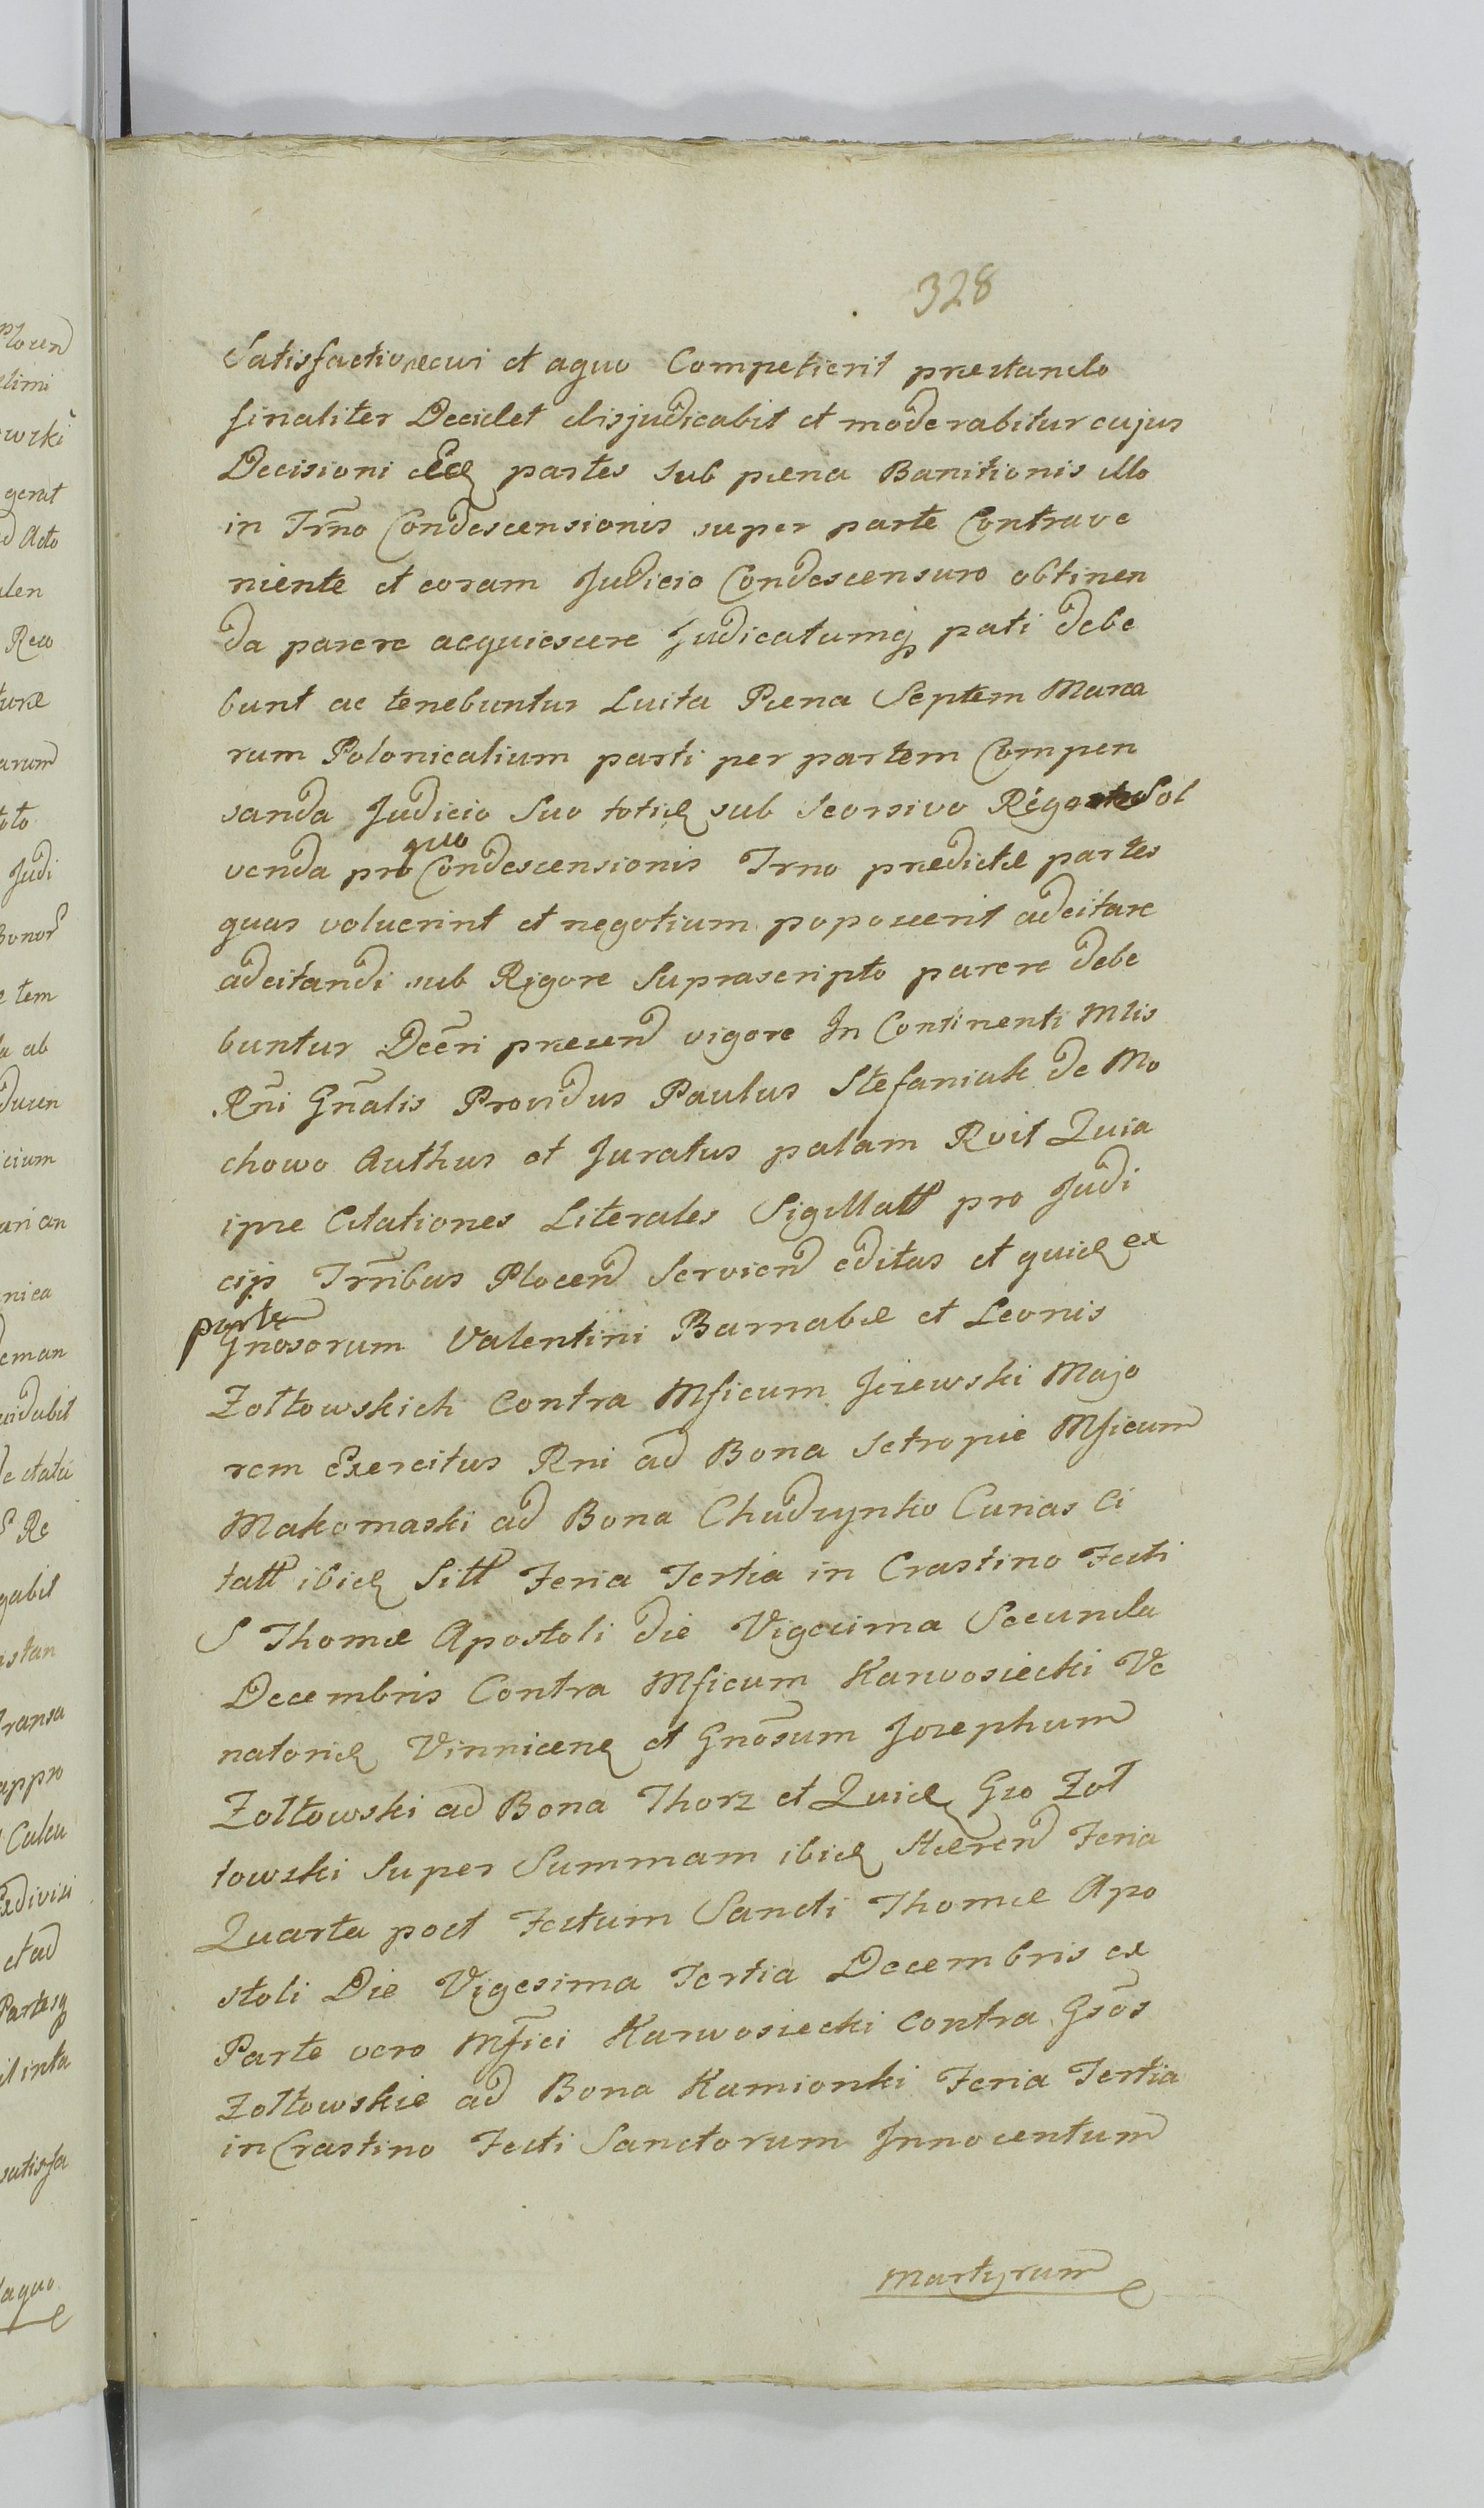 328
Satisfactionecui et aquo Competierit præstando
finaliter Decidet disjudicabit et moderabitur cujus
Decisioni Eæq partes sub pæna Banitionis illo
in Trno Condescensionis super parte Contrave
niente et coram Judicio Condescensuro obtinen
da parere acquiescere Judicatumq pati debe
bunt ac tenebuntur Luita Pæna Septem Marca
rum Polonicalium parti per partem Compen
sanda Judicio Suo totiq sub Seorsivo Sol
venda pro quo Condescensionis Trno prædictæ partes
quas voluerint et negotium poposcerit adcitare
adcitandi sub Rigore Suprascripto parere debe
buntur Decri præsend vigore In Continenti Mlis
Rni Gnalis Providus Paulus Stefaniak de Mo
chowo Authus et Juratus palam Rvit Quia
ipse Citationes Literales Sigillatt pro Judi
cijs Trribus Plocend Serviend editas et quidq ex
parte
Gnosorum Valentini Barnabæ et Leonis
Zołtowskich Contra Mficum Jezewski Majo
rem Exercitus Rni ad Bona Setropie Mficum
Makomaski ad Bona Chudzynko Curias Ci
tatt ibidq Sitt Feria Tertia in Crastino Festi
S Thomæ Apostoli die Vigesima Secunda
Decembris Contra Mficum Karwosiecki Ve
natoriq Vinnicenq et Gnosum Josephum
Zołtowski ad Bona Thorz et Quidq Gso Zoł
towski Super Summam ibidq Hærend Feria
Quarta post Festum Sancti Thomæ Apo
stoli Die Vigesima Tertia Decembris ex
Parte vero Mfici Karwosiecki contra Gsos
Zołtowskie ad Bona Kamionki Feria Tertia
in Crastino Festi Sanctorum Innocentum
Martyrum